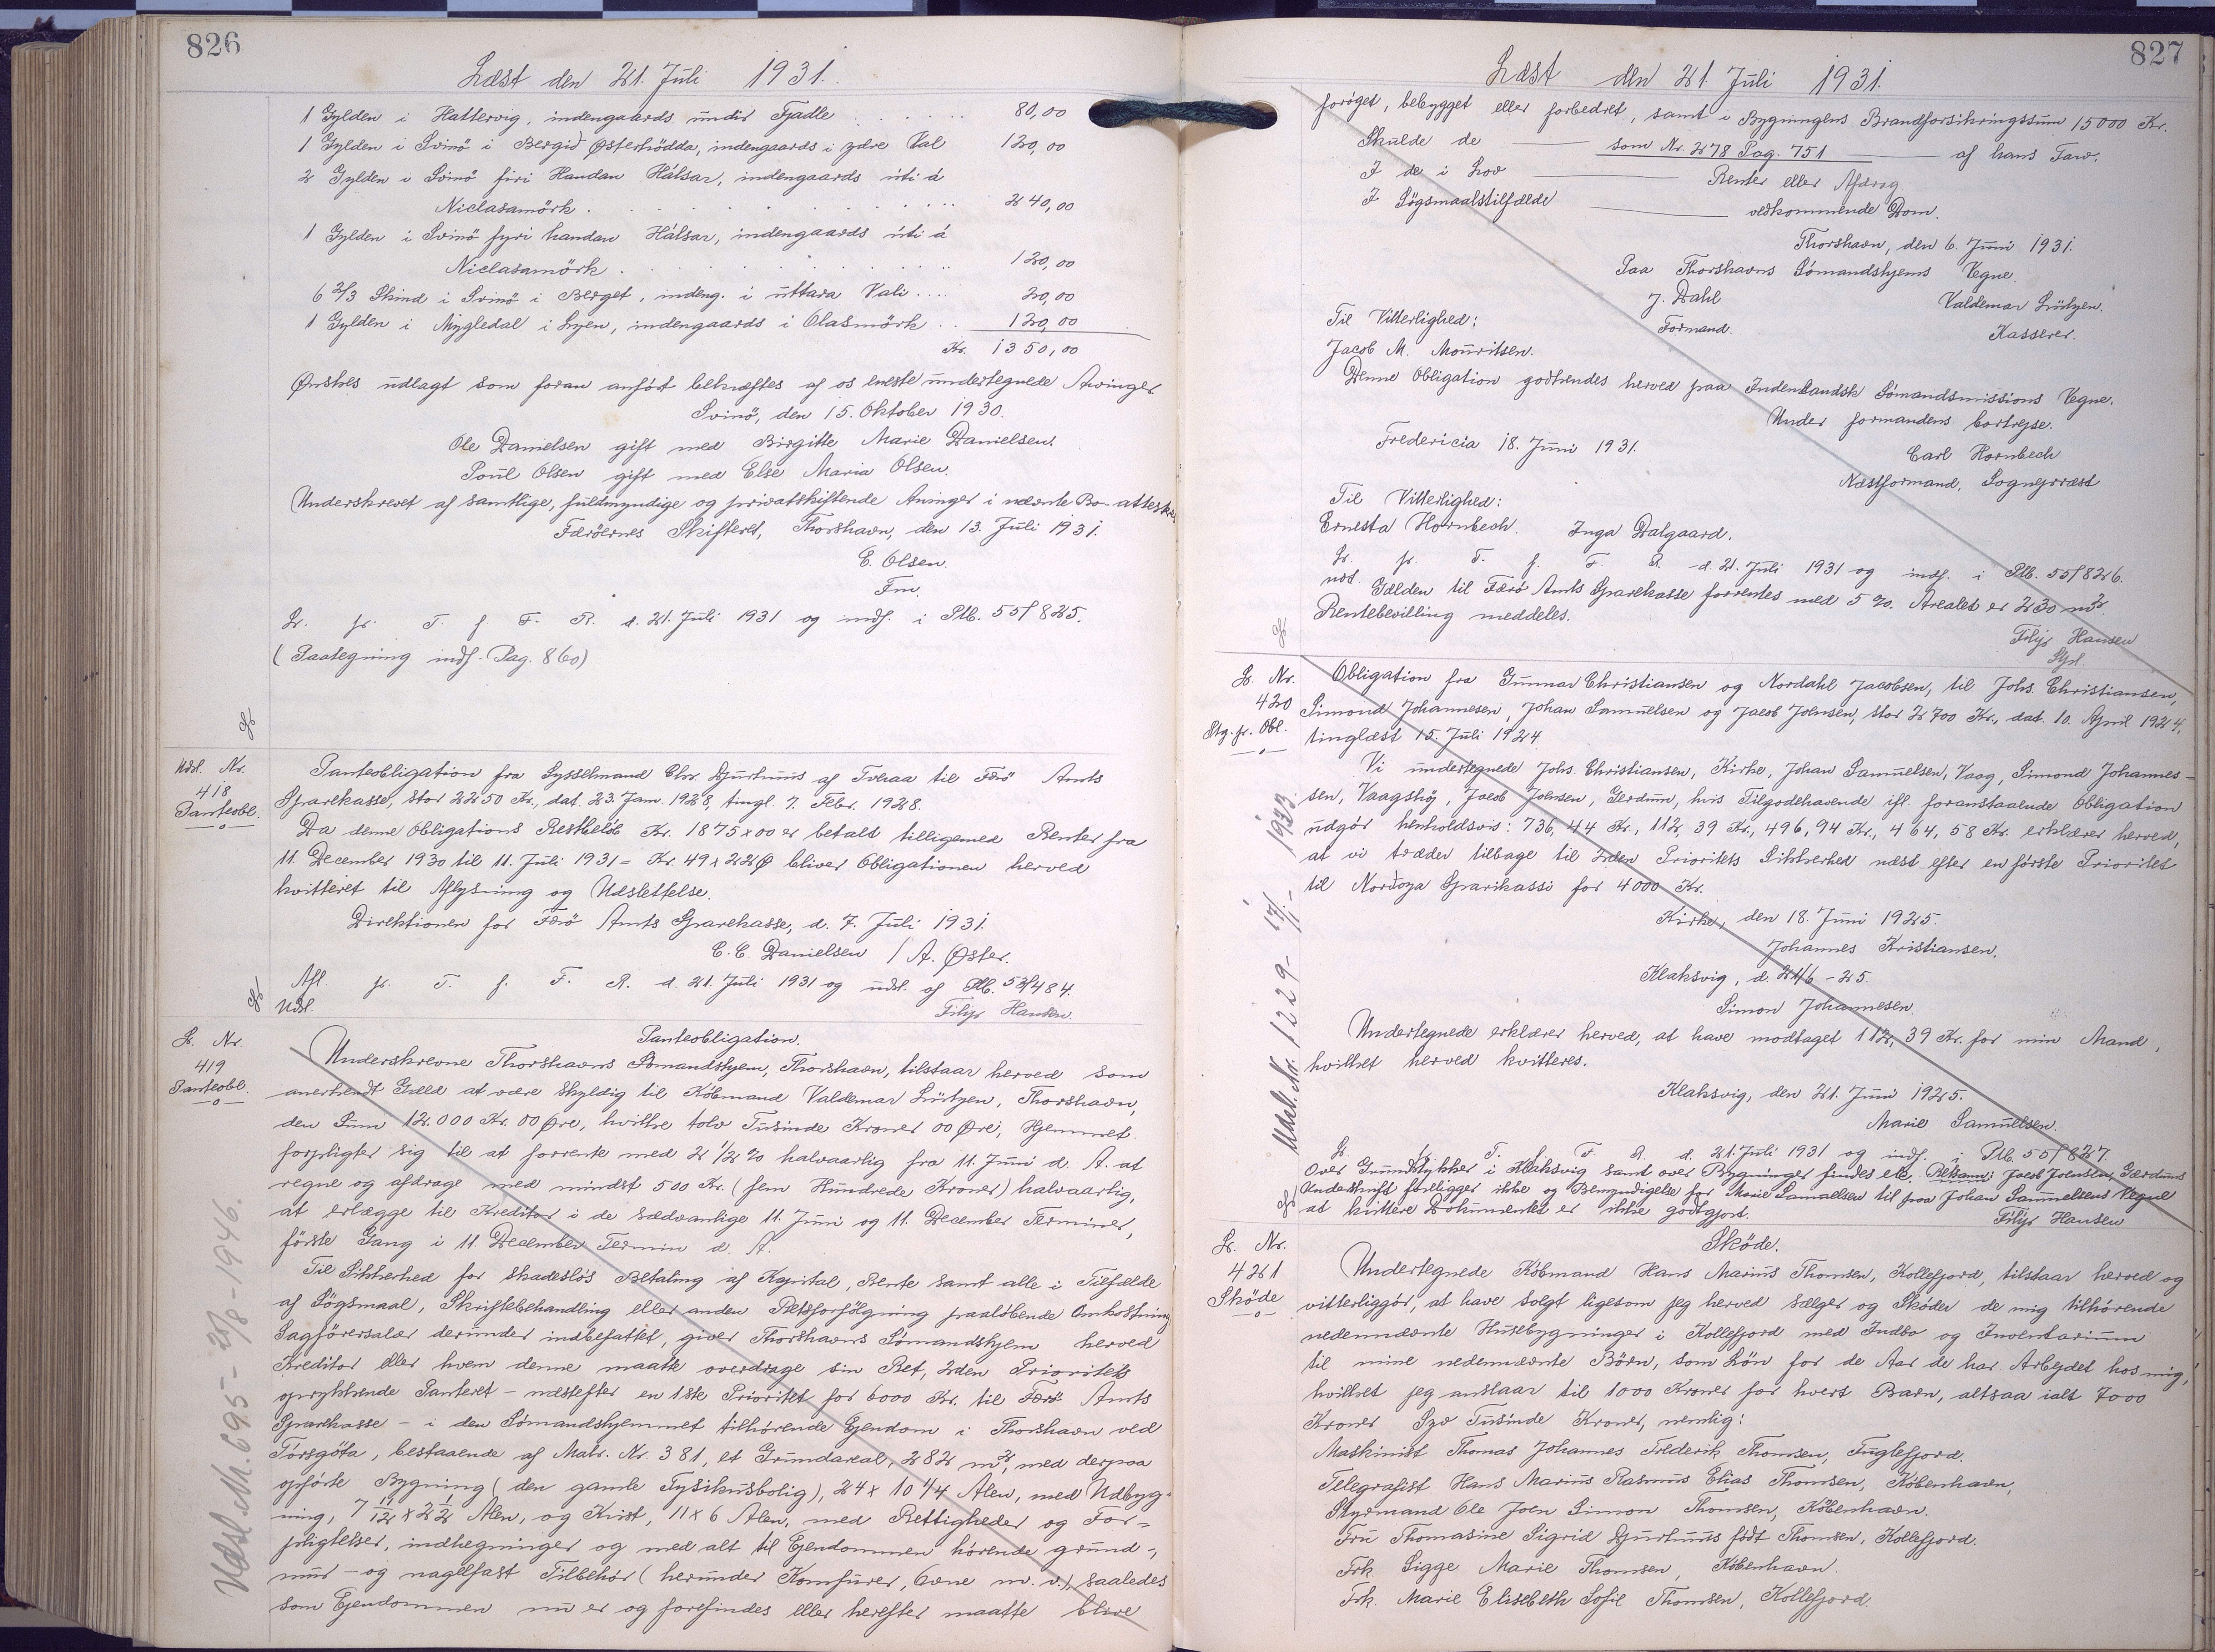 826
Læst den 21. Juli 1931.
1 Gylden i Hattervig, indengaards undir Fjadle . . . . . . 80,00
1 Gylden i Svinö i Bergid Østerhödda, indengaards i ydre Val 120,00
2 Gylden i Svinö firi Handan Hálsar, indengaards úti á
Niclasamörk . . . . . . . 240,00
1 Gylden i Svinö fyri handan Hálsar, indengaards úti á
Niclasamörk . . . . . . . 120,00
6 2/3 Skind i Svinö i Berget, indeng. i uttara Vali .... 20,00
1 Gylden i Mygledal i Lyen, indengaards i Olasmörk .. 120,00
Kr. 1350,00
Ønskes udlagt som foran anfört bekræftes af os eneste undertegnede Arvinger
Svinö, den 15. Oktober 1930.
Ole Danielsen gift med Birgitte Marie Danielsen.
Poul Olsen gift med Else Maria Olsen.
Underskrevet af samtlige, fuldmyndige og privatskiftende Arvinger i nævnte Bo attesteres
Færöernes Skifteret, Thorshavn, den 13. Juli 1931.
E. Olsen.
Fm.
L. fr. T. f. F. R. d. 21. Juli 1931 og indf. i Ptb. 55/825.
(Paategning indf. Pag. 860)
Udsl. Nr.
418
Panteobl.
Panteobligation fra Sysselmand Chr. Djurhuus af Tveraa til Færö Amts
Sparekasse, stor 2250 Kr., dat. 23. Jan. 1928, tingl. 7. Febr. 1928.
Da denne Obligations Restbeløb Kr. 1875x00 er betalt tilligemed Renter fra
11. December 1930 til 11. Juli 1931 = Kr. 49x22Ø bliver Obligationen herved
kvitteret til Aflysning og Udslettelse.
Direktionen for Færö Amts Sparekasse, d. 7. Juli 1931.
C. C. Danielsen / A. Øster.
Afl. fr. T. f. F. R. d. 21. Juli 1931 og udsl. af Ptb. 53/484.
Udsl. Filip Hansen.
L. Nr.
419
Panteobl.
Panteobligation.
Underskrevne Thorshavns Sömandshjem, Thorshavn, tilstaar herved som
anerkendt Gæld at være skyldig til Köbmand Valdemar Lützen, Thorshavn,
den Sum 12.000 Kr. 00 Øre, hvilke tolv Tusinde Kroner 00 Øre, Hjemmet
forpligter sig til at forrente med 2 1/2 % halvaarlig fra 11. Juni d. A. at
regne og afdrage med mindst 500 Kr. (fem Hundrede Kroner) halvaarlig,
at erlægge til Kreditor i de sædvanlige 11. Juni og 11. December Terminer,
förste Gang i 11. December Termin d. A.
Til Sikkerhed for skadeslös Betaling af Kapital, Rente samt alle i Tilfælde
af Sögsmaal, Skiftebehandling eller anden Retsforfölgning paalöbende Omkostning
Sagförersalær derunder indbefattet, giver Thorshavns Sömandshjem herved
Kreditor eller hvem denne maatte overdrage sin Ret, 2den Prioritets
oprykkende Panteret - næstefter en 1ste Prioritet for 6000 Kr. til Færö Amts
Sparekasse - i den Sömandshjemmet tilhörende Ejendom i Thorshavn ved
Torsgöta, bestaaende af Matr. Nr. 381, et Grundareal, 282 m², med derpaa
opförte Bygning (den gamle Fysikusbolig), 24 x 10 1/4 Alen, med Udbyg-
ning, 7 11/12 x 2 1/2 Alen, og Kvist, 11 x 6 Alen, med Rettigheder og For-
pligtelser, indhegninger og med alt til Ejendommen hörende grund-,
mur - og nagelfast Tilbehör (herunder Komfurer, Ovne m. v.), saaledes
som Ejendommen nu er og forefindes eller herefter maatte blive
Udsl. Nr. 695 - 20/8 - 1946.
827
Læst den 21 Juli 1931.
forøget, bebygget eller forbedret, samt i Bygningens Brandforsikringssum 15000 Kr.
Skulde de som Nr. 278 Pag. 751 af hans Tarv.
I de i Lov Renter eller Afdrag
I Sögsmaalstilfælde vedkommende Dom.
Thorshavn, den 6. Juni 1931.
Paa Thorshavns Sömandshjems Vegne.
J. Dahl Valdemar Lützen.
Formand. Kasserer.
Til Vitterlighed:
Jacob M. Mouritsen.
Denne Obligation godkendes herved paa Indenlandsk Sömandsmissions Vegne.
Under formandens bortrejse.
Fredericia 18. Juni 1931.
Carl Hornbech
Næstformand, Sognepræst
Til Vitterlighed:
Ernesta Hornbech. Inga Dalgaard.
L. fr. T. f. F. R. d. 21. Juli 1931 og indf. i Ptb. 55/826.
Gælden til Færö Amts Sparekasse forrentes med 5 %. Arealet er 230 m².
Rentebevilling meddeles.
Filip Hansen
L. Nr.
420
Obl.
Obligation fra Gunnar Christiansen og Nordahl Jacobsen, til Johs. Christiansen,
Simond Johannesen, Johan Samuelsen og Jacob Joensen, stor 2700 Kr., dat. 10. April 1924,
tinglæst 15. Juli 1924.
Vi undertegnede Johs. Christiansen, Kirke, Johan Samuelsen, Vaag, Simond Johannes-
sen, Vaagshöj, Jacob Joensen, Gerdum, hvis Tilgodehavende ifl. foranstaaende Obligation
udgör henholdsvis: 736,44 Kr., 112,39 Kr., 496,94 Kr., 464,58 Kr. erklærer herved,
at vi træder tilbage til 2den Prioritets Sikkerhed næst efter en förste Prioritet
til Nordoya Sparikassi for 4000 Kr.
Kirke, den 18. Juni 1925.
Johannes Kristiansen.
Klaksvig, d. 21/6 - 25.
Simon Johannesen.
Undertegnede erklærer herved, at have modtaget 112,39 Kr. for min Mand,
hvilket herved kvitteres.
Klaksvig, den 21. Juni 1925.
Marie Samuelsen.
L. fr. T. f. F. R. d. 21. Juli 1931 og indf. i Ptb. 55/827.
Over Grundstykker i Klaksvig samt over Bygninger findes etc. Jacob Joensens, Gærdums
Underskrift foreligger ikke og Bemyndigelse for Marie Samuelsen til paa Johan Samuelsens Vegne
at kvittere Dokumentet er ikke godtgjort.
Filip Hansen
Udsl. Nr. 1229 - 17/1 - 1933.
L. Nr.
421
Sköde
Sköde.
Undertegnede Köbmand Hans Marius Thomsen, Kollefjord, tilstaar herved og
vitterliggör, at have solgt ligesom jeg herved sælger og Sköder de mig tilhörende
nedennævnte Husebygninger i Kollefjord med Indbo og Inventarium
til mine nedennævnte Börn, som Lön for de Aar de har Arbejdet hos mig,
hvilket jeg anslaar til 1000 Kroner for hvert Barn, altsaa ialt 7000
Kroner Syv Tusinde Kroner, nemlig:
Maskinist Thomas Johannes Frederik Thomsen, Fuglefjord.
Telegrafist Hans Marius Rasmus Elias Thomsen, København,
Styrmand Ole Joen Simon Thomsen, København.
Fru Thomasine Sigrid Djurhuus födt Thomsen, Kollefjord.
Frk. Sigge Marie Thomsen, København.
Frk. Marie Elisebeth Sofie Thomsen, Kollefjord.